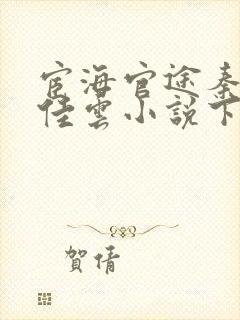 宦海官途秦
佳雲小說下
賀倩